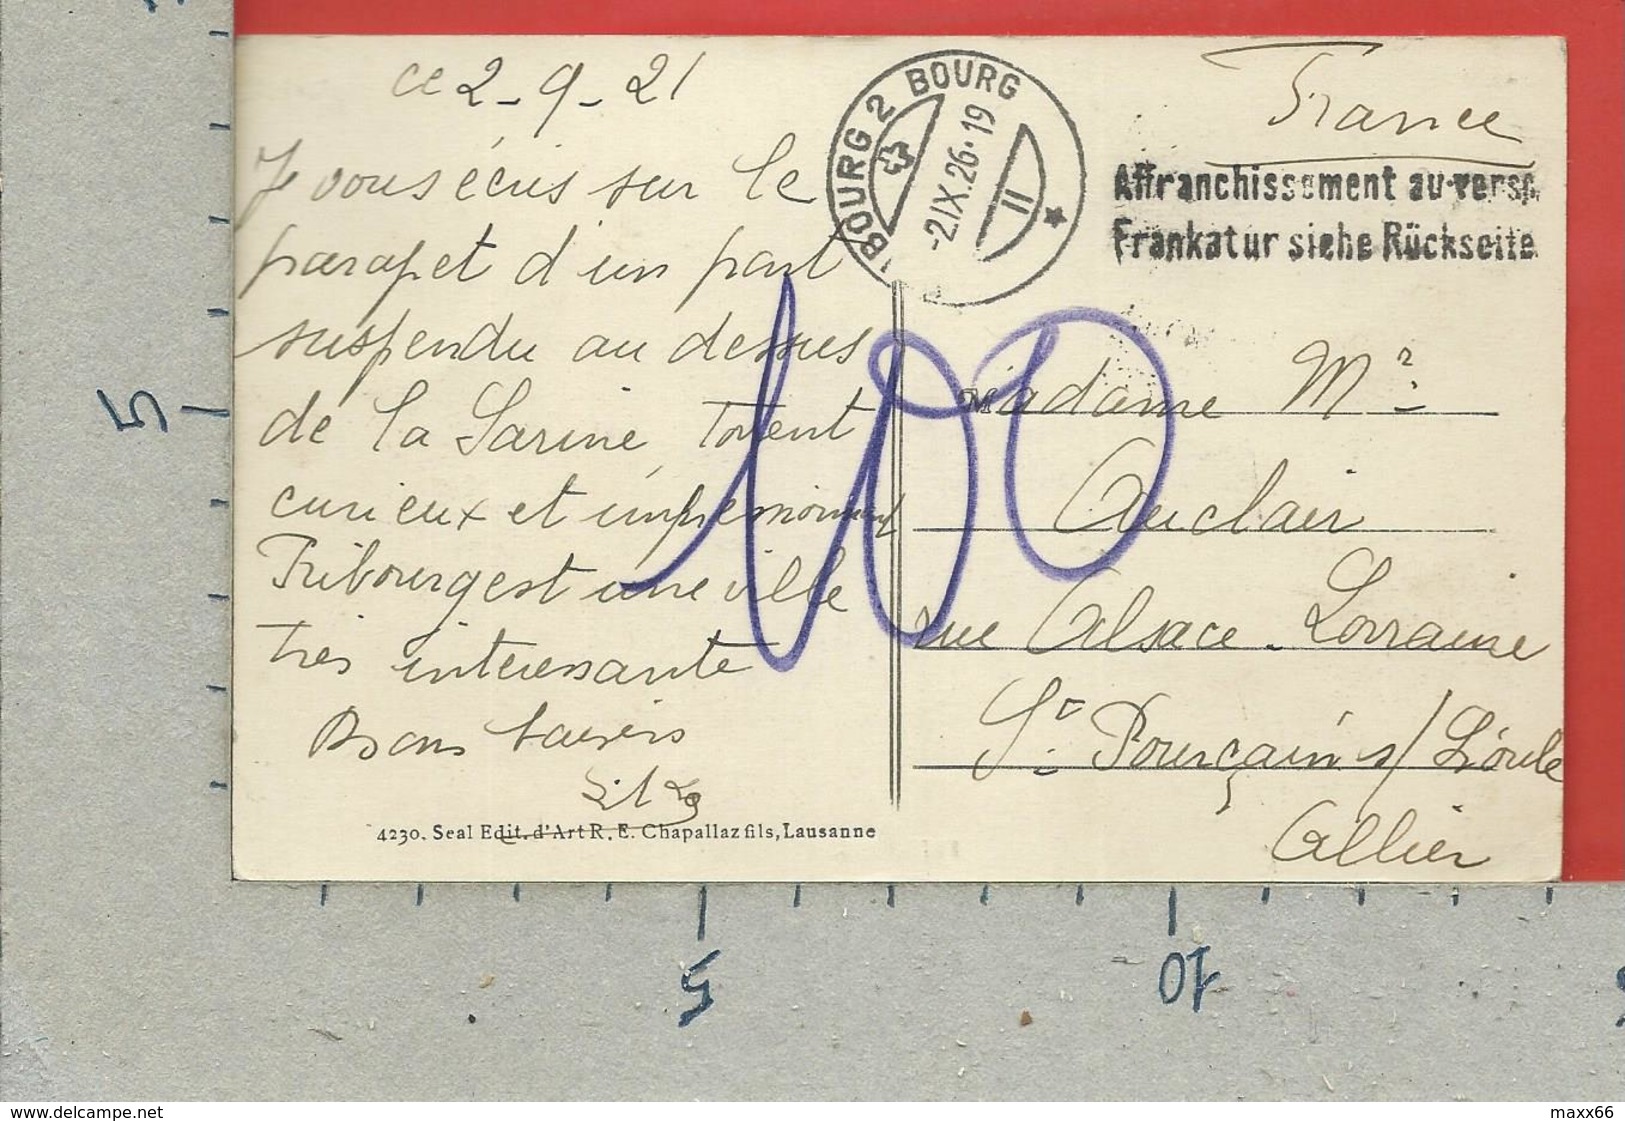 ce 2-9-21
Je vous écris sur le
parapet d'un pont
suspendu au dessus
de la Sarine, torrent
curieux et impressionnant
Fribourg est une ville
très intéressante
Bons baisers
4230. Seal Edit. d'Art R. E. Chapallaz fils, Lausanne
BOURG 2 BOURG
-2.IX.26•19
II
France
Affranchissement au verso.
Frankatur siehe Rückseite.
100
Madame Mr
Auclair
rue Alsace-Lorraine
St Pourçain s/
Allier
5
5
10
www.delcampe.net
maxx66